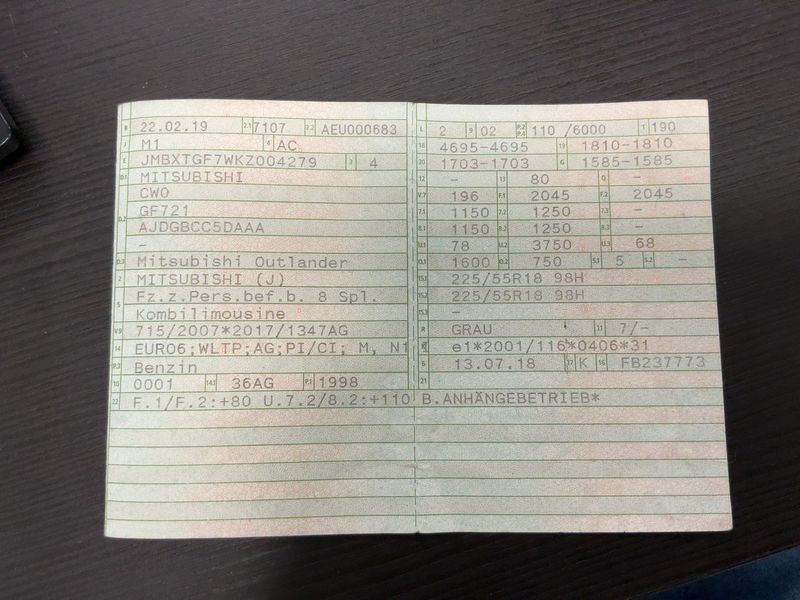 B 22.02.19 2.1 7107 2.2 AEU000683
J M1 4 AC
E JMBXTGF7WKZ004279 3 4
D.1 MITSUBISHI
CW0
D.2 GF721
AJDGBCC5DAAA
-
D.3 Mitsubishi Outlander
2 MITSUBISHI (J)
5 Fz.z.Pers.bef.b. 8 Spl.
Kombilimousine
V.9 715/2007*2017/1347AG
14 EURO6;WLTP;AG;PI/CI; M, N1
P.3 Benzin
10 0001 14.1 36AG P.1 1998
L 2 9 02 P.2 P.4 110 /6000 T 190
18 4695-4695 19 1810-1810
20 1703-1703 G 1585-1585
12 - 13 80 Q -
V.7 196 F.1 2045 F.2 2045
7.1 1150 7.2 1250 7.3 -
8.1 1150 8.2 1250 8.3 -
U.1 78 U.2 3750 U.3 68
O.1 1600 O.2 750 S.1 5 S.2 -
15.1 225/55R18 98H
15.2 225/55R18 98H
15.3 -
R GRAU 11 7/-
K e1*2001/116*0406*31
6 13.07.18 17 K 16 FB237773
21
22 F.1/F.2:+80 U.7.2/8.2:+110 B.ANHÄNGEBETRIEB*